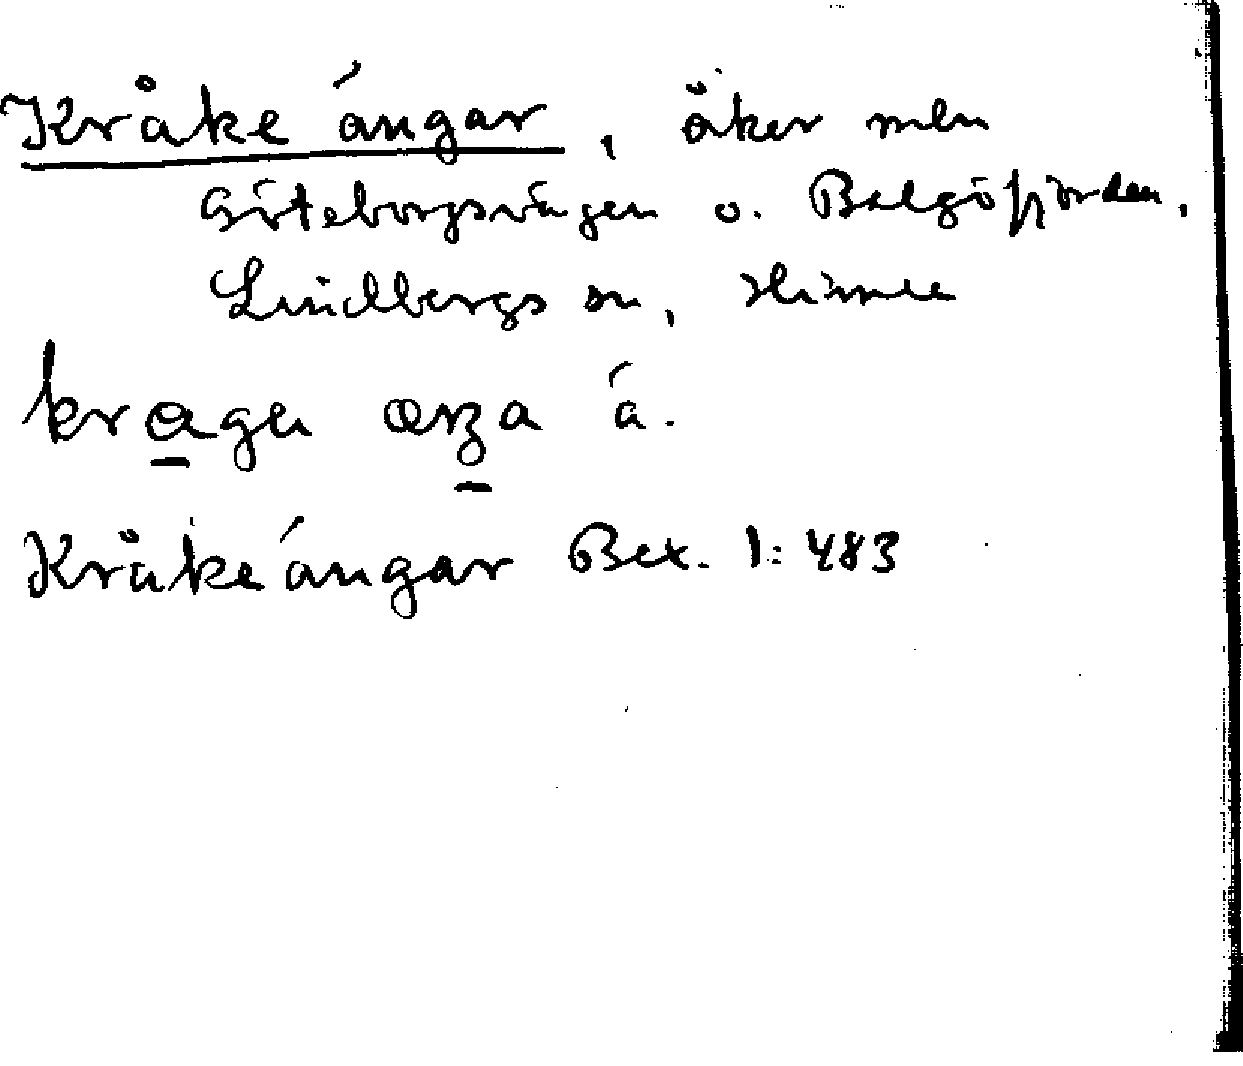 Kråke ängar, åker mln
Göteborgsvägen o. Balgöfjorden,
Lindbergs sn, Himle
kragu
Kråkeängar Bex. 1:483